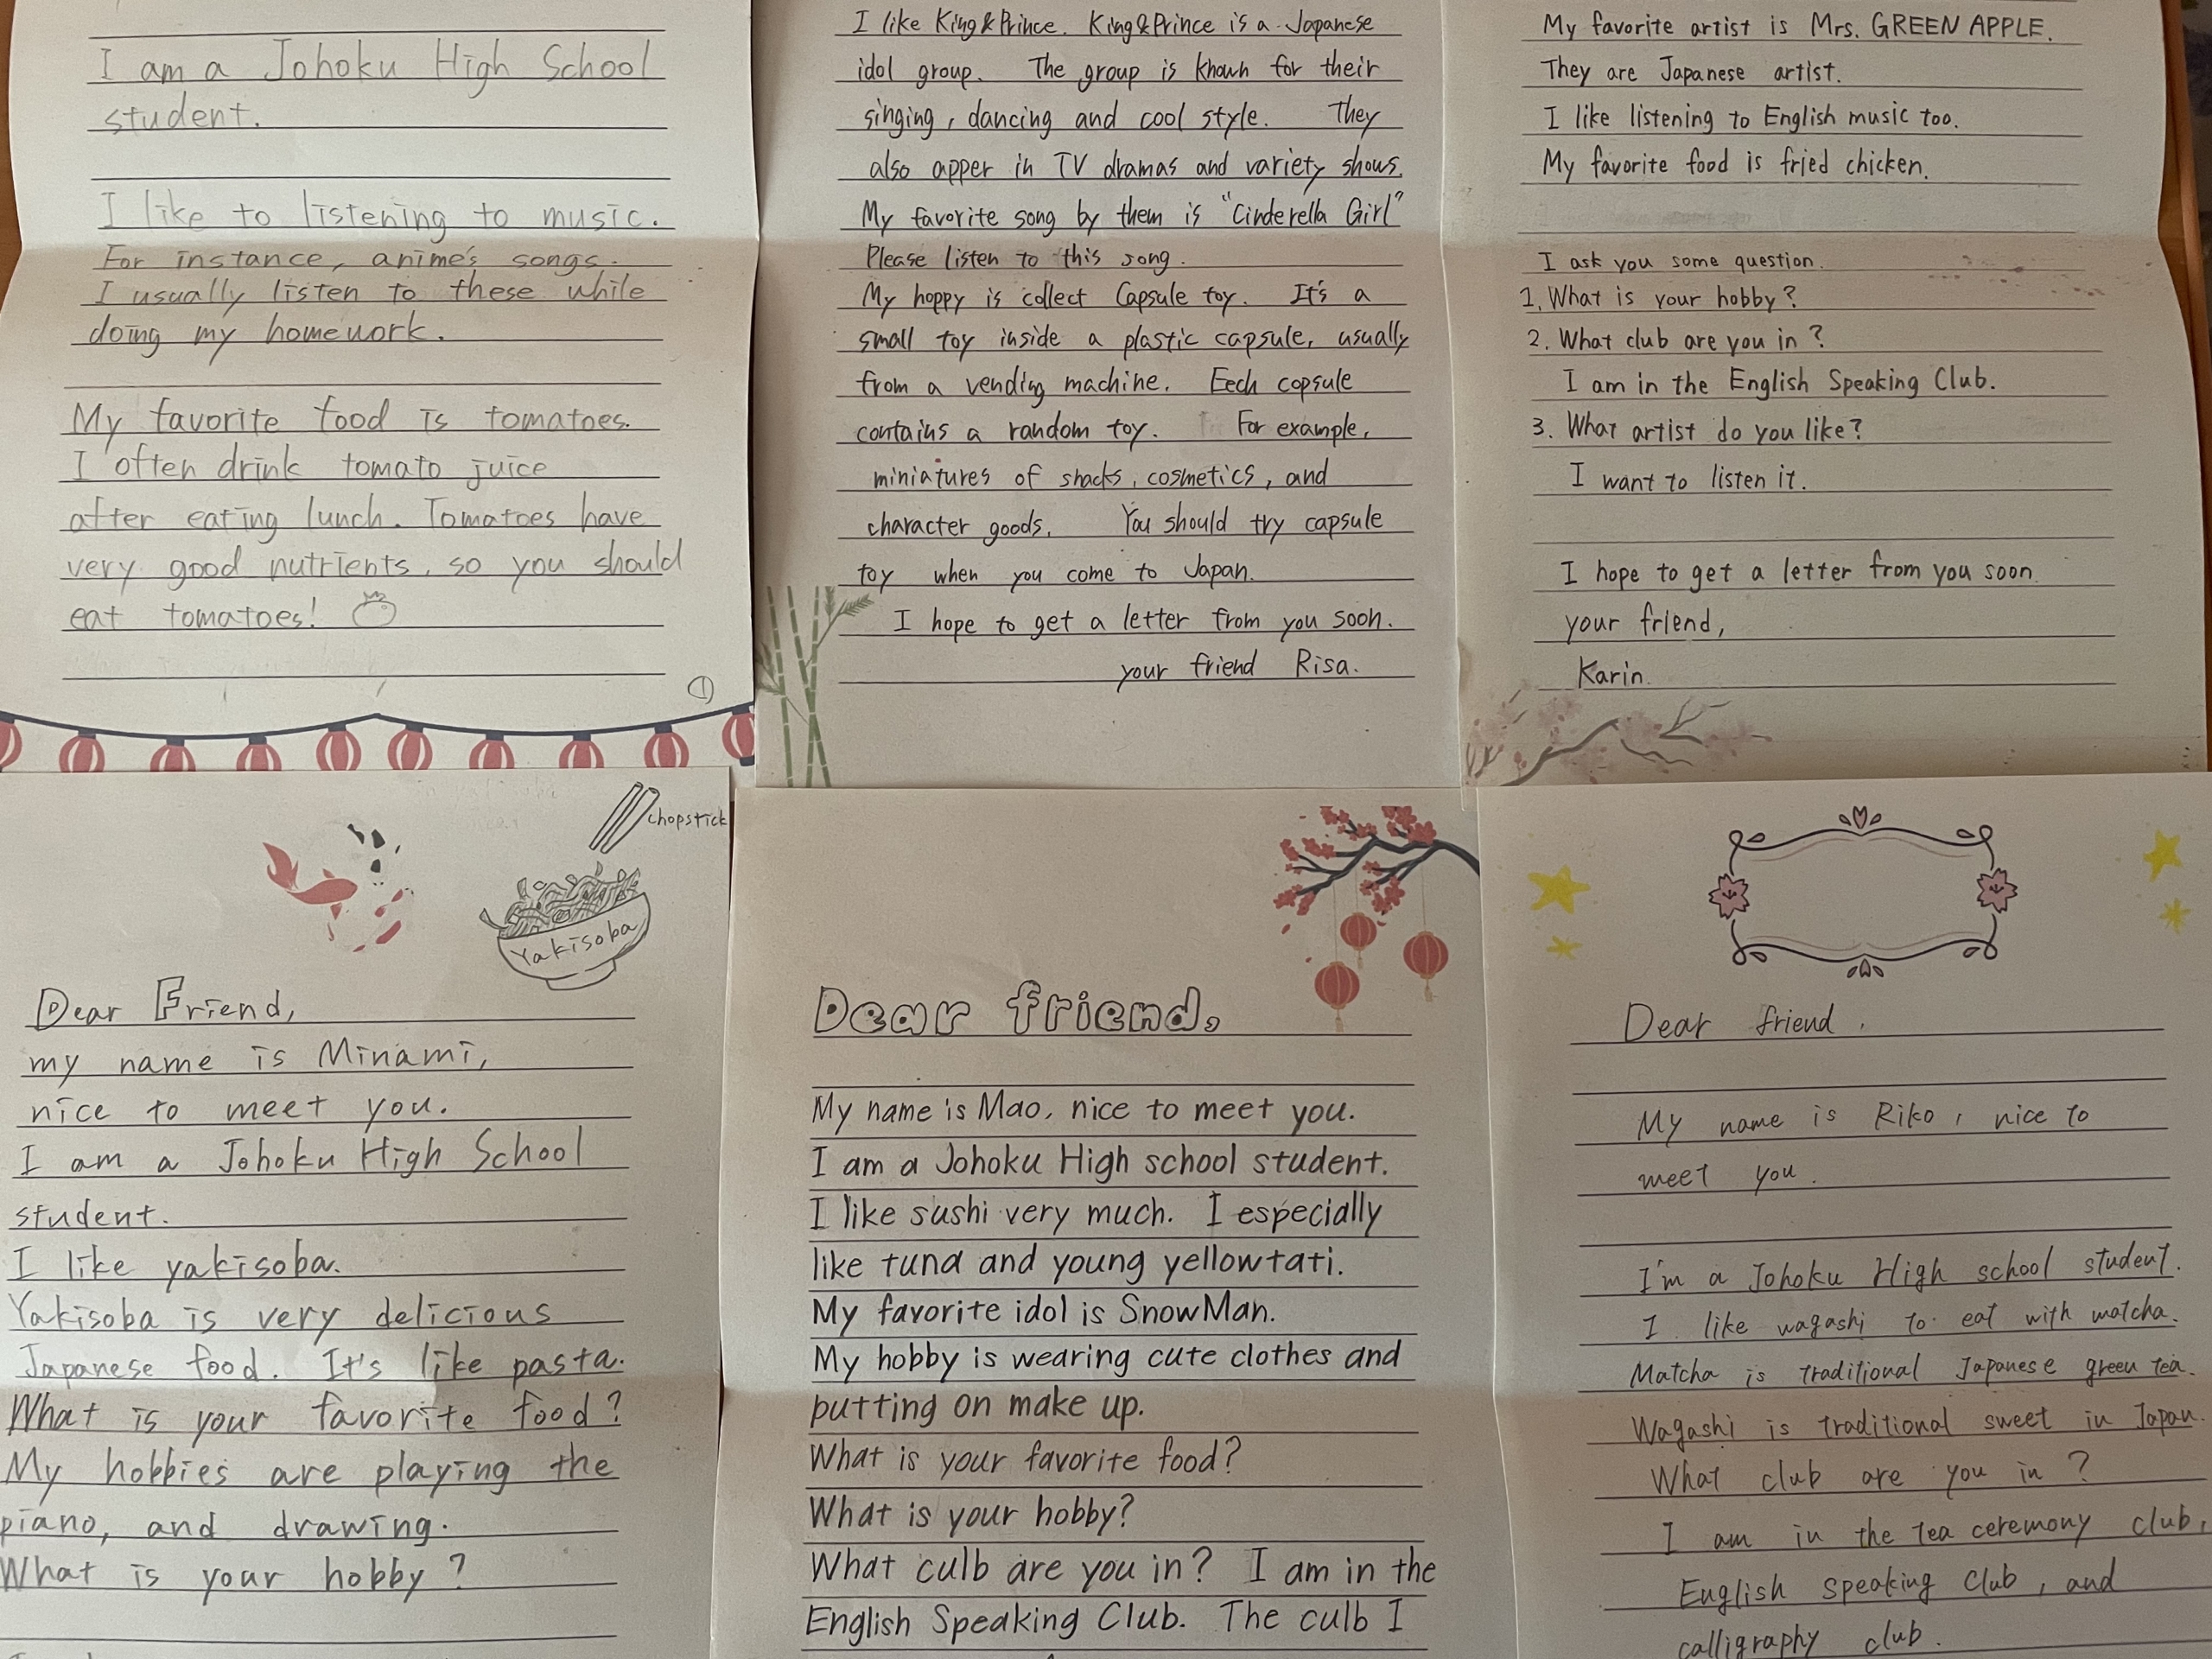 I am a Johoku High School
student.
I like to listening to music.
For instance, anime's songs.
I usually listen to these while
doing my homework.
My favorite food is tomatoes.
I often drink tomato juice
after eating lunch. Tomatoes have
very good nutrients, so you should
eat tomatoes!
①
I like King&Prince. King&Prince is a Japanese
idol group. The group is known for their
singing, dancing and cool style. They
also apper in TV dramas and variety shows.
My favorite song by them is "Cinderella Girl"
Please listen to this song.
My hoppy is collect Capsule toy. It's a
small toy inside a plastic capsule, usually
from a vending machine. Eech capsule
contains a random toy. For example,
miniatures of snacks, cosmetics, and
character goods. You should try capsule
toy when you come to Japan.
I hope to get a letter from you soon.
your friend Risa.
My favorite artist is Mrs. GREEN APPLE.
They are Japanese artist.
I like listening to English music too.
My favorite food is fried chicken.
I ask you some question.
1. What is your hobby?
2. What club are you in?
I am in the English Speaking Club.
3. What artist do you like?
I want to listen it.
I hope to get a letter from you soon
your friend,
Karin.
chopstick
Yakisoba
Dear Friend,
my name is Minami,
nice to meet you.
I am a Johoku High School
student.
I like yakisoba.
Yakisoba is very delicious
Japanese food. It's like pasta.
What is your favorite food?
My hobbies are playing the
piano, and drawing.
What is your hobby?
Dear friend,
My name is Mao, nice to meet you.
I am a Johoku High school student.
I like sushi very much. I especially
like tuna and young yellowtati.
My favorite idol is SnowMan.
My hobby is wearing cute clothes and
putting on make up.
What is your favorite food?
What is your hobby?
What culb are you in? I am in the
English Speaking Club. The culb I
Dear friend,
My name is Riko, nice to
meet you.
I'm a Johoku High school student.
I like wagashi to eat with matcha.
Matcha is traditional Japanese green tea.
Wagashi is traditional sweet in Japan.
What club are you in?
I am in the tea ceremony club,
English speaking club, and
calligraphy club.